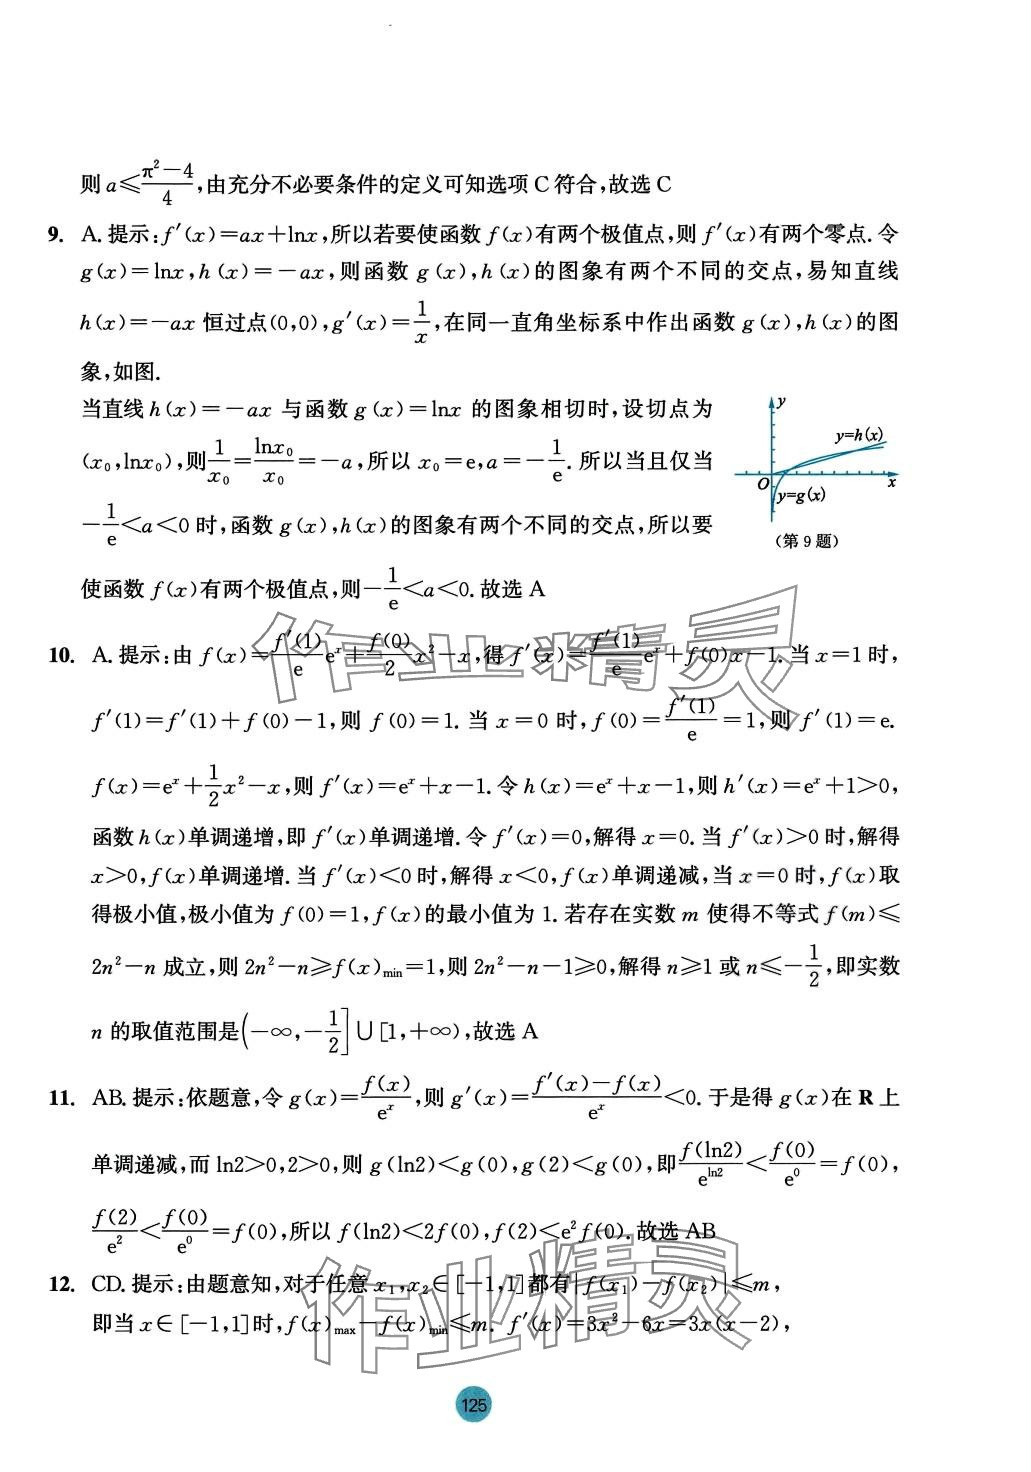 则a≤(π²−4)/4,由充分不必要条件的定义可知选项C符合,故选C
9. A.提示:f′(x)=ax+lnx,所以若要使函数f(x)有两个极值点,则f′(x)有两个零点.令
g(x)=lnx,h(x)=−ax,则函数g(x),h(x)的图象有两个不同的交点,易知直线
h(x)=−ax恒过点(0,0),g′(x)=1/x,在同一直角坐标系中作出函数g(x),h(x)的图
象,如图.
当直线h(x)=−ax与函数g(x)=lnx的图象相切时,设切点为
(x₀,lnx₀),则1/x₀=lnx₀/x₀=−a,所以x₀=e,a=−1/e.所以当且仅当
−1/e<a<0时,函数g(x),h(x)的图象有两个不同的交点,所以要
使函数f(x)有两个极值点,则−1/e<a<0.故选A
y
y=h(x)
O
x
y=g(x)
(第9题)
10. A.提示:由f(x)=f′(1)/e eˣ+f(0)/2 x²−x,得f′(x)=f′(1)/e eˣ+f(0)x−1.当x=1时,
f′(1)=f′(1)+f(0)−1,则f(0)=1.当x=0时,f(0)=f′(1)/e=1,则f′(1)=e.
f(x)=eˣ+1/2x²−x,则f′(x)=eˣ+x−1.令h(x)=eˣ+x−1,则h′(x)=eˣ+1>0,
函数h(x)单调递增,即f′(x)单调递增.令f′(x)=0,解得x=0.当f′(x)>0时,解得
x>0,f(x)单调递增.当f′(x)<0时,解得x<0,f(x)单调递减,当x=0时,f(x)取
得极小值,极小值为f(0)=1,f(x)的最小值为1.若存在实数m使得不等式f(m)≤
2n²−n成立,则2n²−n≥f(x)min=1,则2n²−n−1≥0,解得n≥1或n≤−1/2,即实数
n的取值范围是(−∞,−1/2]∪[1,+∞),故选A
11. AB.提示:依题意,令g(x)=f(x)/eˣ,则g′(x)=(f′(x)−f(x))/eˣ<0.于是得g(x)在R上
单调递减,而ln2>0,2>0,则g(ln2)<g(0),g(2)<g(0),即f(ln2)/e^ln2<f(0)/e⁰=f(0),
f(2)/e²<f(0)/e⁰=f(0),所以f(ln2)<2f(0),f(2)<e²f(0).故选AB
12. CD.提示:由题意知,对于任意x₁,x₂∈[−1,1]都有|f(x₁)−f(x₂)|≤m,
即当x∈[−1,1]时,f(x)max−f(x)min≤m.f′(x)=3x²−6x=3x(x−2),
作业精灵
作业精灵
125